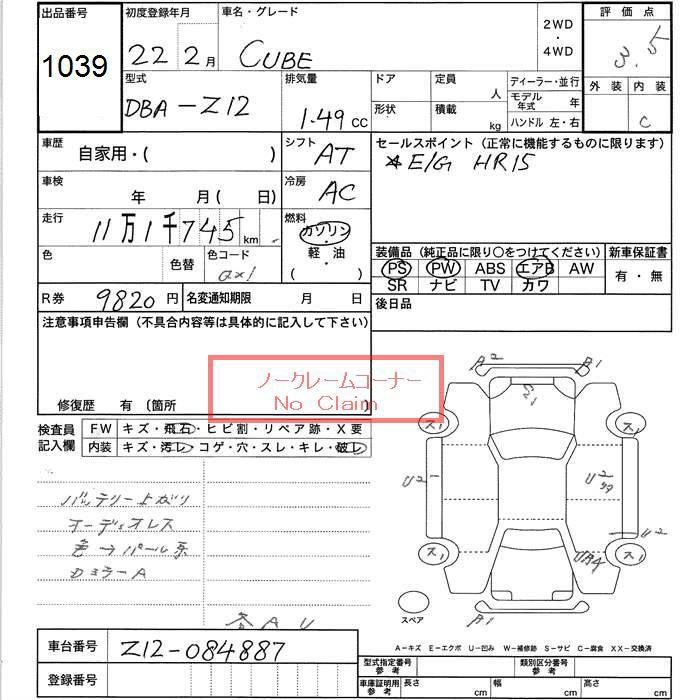 出品番号
1039
初度登録年月
22 2月
車名・グレード
CUBE
2WD
・
4WD
評価点
3.5
外装 内装
C
型式
DBA-Z12
排気量
1.49 CC
ドア
定員
人
ディーラー・並行
モデル年式 年
形状
積載
kg
ハンドル 左・右
車歴
自家用・( )
シフト
AT
セールスポイント (正常に機能するものに限ります)
E/G HR15
車検
年 月( 日)
冷房
AC
走行
11万1千745km
燃料
ガソリン
・
軽油
( )
色
色替
色コード
QX1
装備品 (純正品に限り〇をつけてください)
PS PW ABS エアB AW
SR ナビ TV カワ
新車保証書
有・無
R券
9820円
名変通知期限
月 日
後日品
注意事項申告欄 (不具合内容等は具体的に記入して下さい)
ノークレームコーナー
No Claim
修復歴 有 (箇所
検査員
記入欄
FW キズ・飛石・ヒビ割・リペア跡・X要
内装 キズ・汚レ・コゲ・穴・スレ・キレ・破レ
バッテリー上がり
オーディオレス
色→パール系
カミラーA
各AU
A2
B1
S1
ス1
ス1
U2
U2
U2
ス1
ス1
UA4
B1
スペア
A-キズ E-エクボ U-凹み W-補修跡 S-サビ C-腐食 XX-交換済
車台番号
Z12-084887
登録番号
型式指定番号
参考
類別区分番号
参考
車庫証明用
参考
長さ
cm
幅
cm
高さ
cm